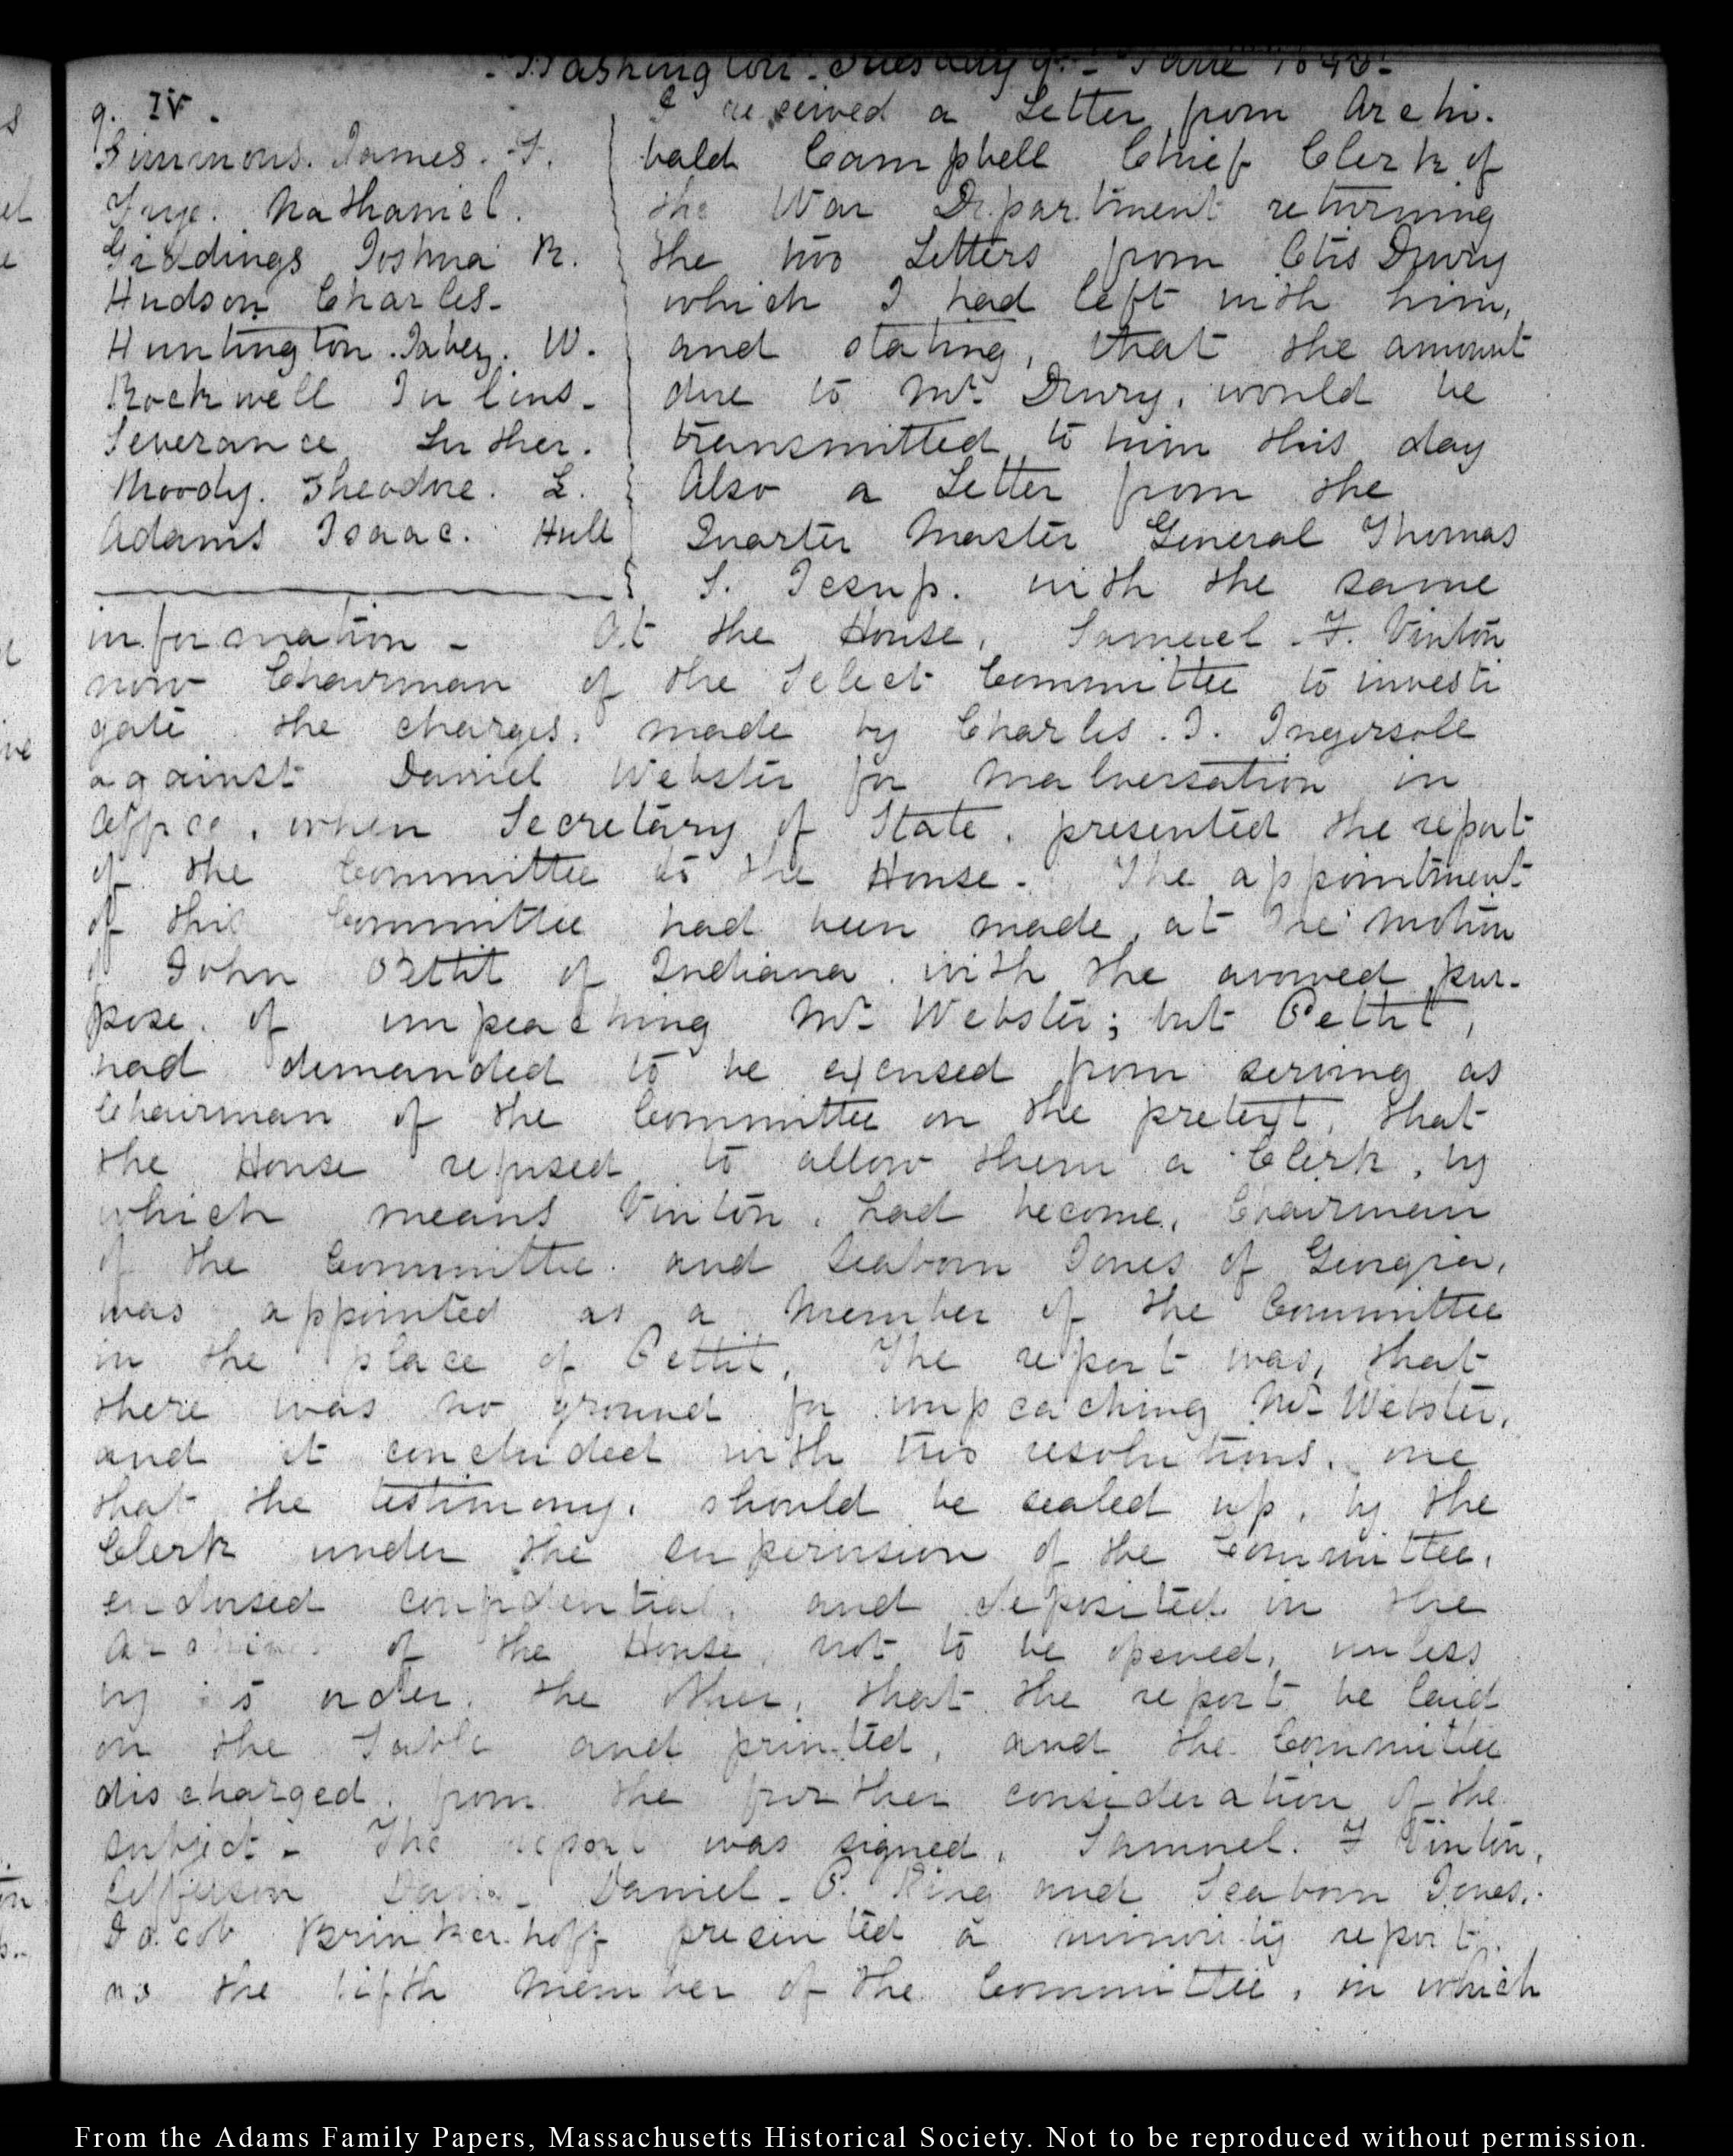 Washington. Tuesday 9. June 1846.
9. IV.
Simmons. James. F.
Frye. Nathaniel.
Giddings Joshua R.
Hudson Charles.
Huntington. Jabez. W.
Rockwell Julius.
Severance Luther.
Moody. Theodore. L.
Adams Isaac. Hull
I received a Letter from Archi-
bald Campbell Chief Clerk of
the War Department returning
the two Letters from Otis Drury
which I had left with him,
and stating, that the amount
due to Mr. Drury, would be
transmitted to him this day
Also a Letter from the
Quarter Master General Thomas
S. Jesup. with the same
information - At the House, Samuel F. Vinton
now Chairman of the Select Committee to investi
gate the charges, made by Charles. J. Ingersoll
against Daniel Webster for malversation in
Office, when Secretary of State, presented the report
of the Committee to the House. The appointment
of this Committee had been made, at the motion
of John Pettit of Indiana with the avowed pur-
pose of impeaching Mr. Webster; but Pettit,
had demanded to be excused from serving as
Chairman of the Committee on the pretext, that
the House refused to allow them a Clerk, by
which means Vinton, had become, Chairman
of the Committee. and Seaborn Jones of Georgia,
was appointed as a member of the Committee
in the place of Pettit, The report was, that
there was no ground for impeaching Mr. Webster,
and it concluded with two resolutions, one
that the testimony, should be sealed up, by the
Clerk under the supervision of the Committee,
endorsed confidential, and deposited in the
Archives of the House, not to be opened, unless
by its order, the other, that the report be laid
on the Table and printed, and the Committee
discharged, from the further consideration of the
subject - The report was signed, Samuel. F Vinton,
Jefferson Davis - Daniel - P. King and Seaborn Jones.
Jacob Brinkerhoff presented a minority report.
as the fifth member of the Committee, in which
From the Adams Family Papers, Massachusetts Historical Society. Not to be reproduced without permission.